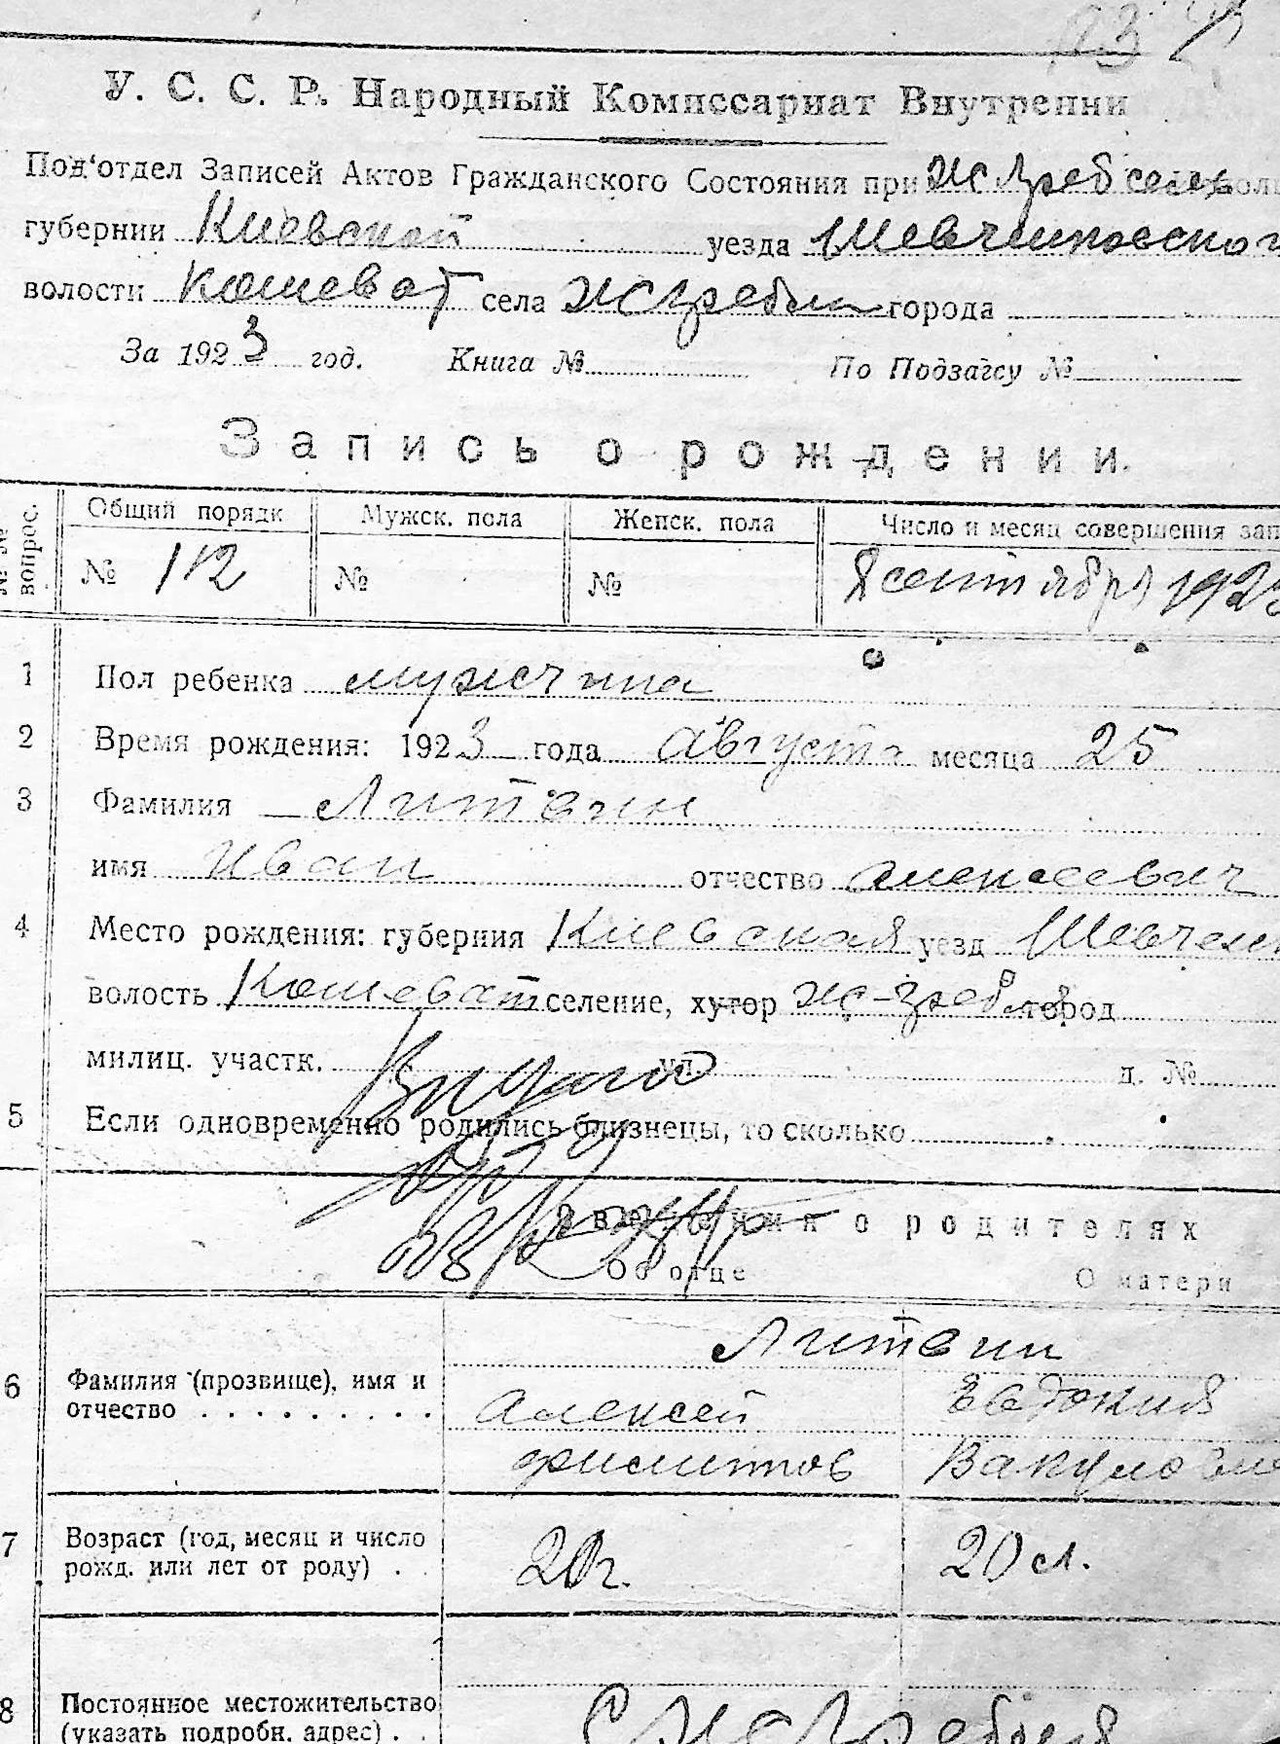 У. С. С. Р. Народный Комиссариат Внутренни
Под'отдел Записей Актов Гражданского Состояния при
губернии Киевской уезда Шевченковского
волости Кошеват села города
За 1923 год. Книга № По Подзагсу №
Запись о рождении.
№№ вопрос. Общий порядк Мужск. пола Женск. пола Число и месяц совершения зап
№ 112 № № 8 сентября 1923
1 Пол ребенка мужчина
2 Время рождения: 1923 года августа месяца 25
3 Фамилия Литвин
имя Иван отчество Алексеевич
4 Место рождения: губерния Киевская уезд Шевчен
волость Кошеват селение, хутор город
милиц. участк. ул. д. №
5 Если одновременно родились близнецы, то сколько
Сведения о родителях
Об отце О матери
Литвин
6 Фамилия (прозвище), имя и Алексей Евдокия
отчество Вакуловна
7 Возраст (год, месяц и число
рожд. или лет от роду) 20 л.
8 Постоянное местожительство
(указать подробн. адрес)